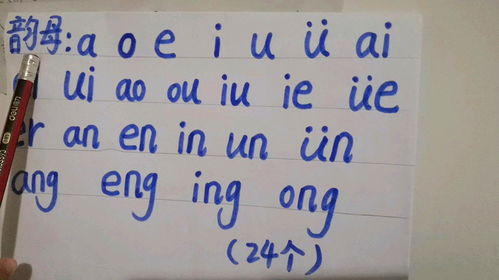 韵母: a o e i u ü ai
ui ao ou iu ie üe
er an en in un ün
ang eng ing ong
(24个)